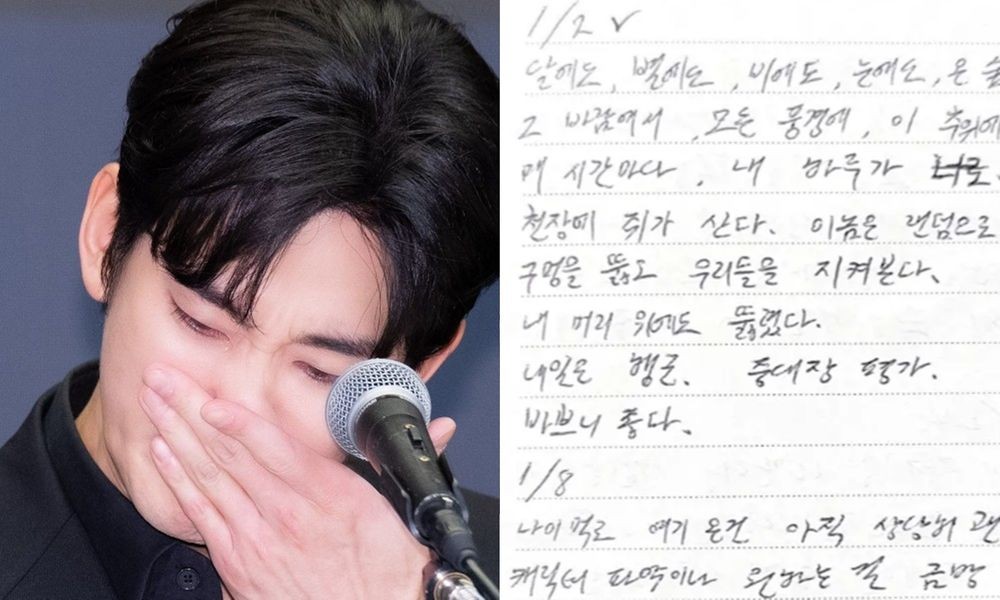 1/2 ✓
달에도, 별에도, 비에도, 눈에도, 온
그 바람에서, 모든 풍경에, 이 추위에
매 시간마다, 내 하루가
천장에 쥐가 산다. 이놈은 랜덤으로
구멍을 뚫고 우리들을 지켜본다.
내 머리 위에도 뚫렸다.
내일은 행군. 중대장 평가.
바쁘니 좋다.
1/8
나이먹고 여기 온건 아직 상당히
캐릭터 파악이나 원하는 걸 금방